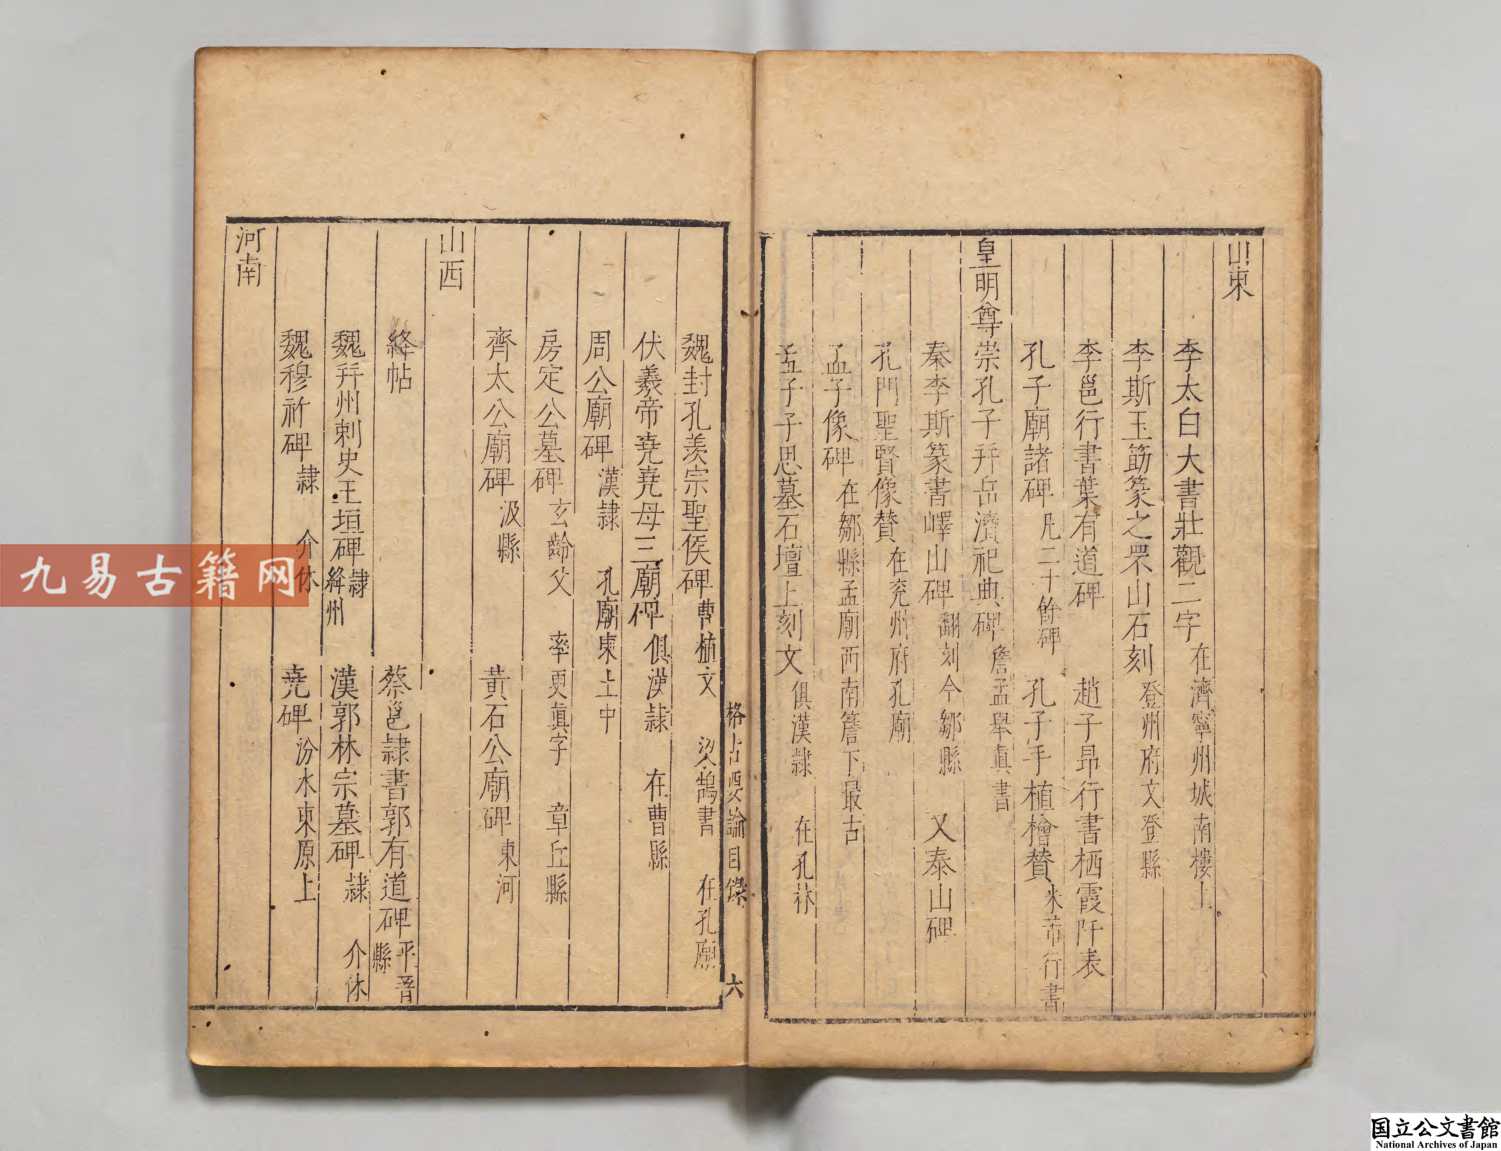 山東
李太白大書壯觀二字 在濟寧州城南樓上
李斯玉筯篆之罘山石刻 登州府文登縣
李邕行書葉有道碑 趙子昻行書栖霞阡表
孔子廟諸碑 凡二十餘碑 孔子手植檜贊 米芾行書
皇明尊崇孔子幷岳濟祀典碑 詹孟舉真書
秦李斯篆書嶧山碑 翻刻今鄒縣 又泰山碑
孔門聖賢像贊 在兖州府孔廟
孟子像碑 在鄒縣孟廟西南簷下最古
孟子子思墓石壇上刻文 俱漢隸 在孔林
魏封孔羨宗聖侯碑 曹植文 梁鵠書 在孔廟
伏羲帝堯堯母三廟碑 俱漢隸 在曹縣
周公廟碑 漢隸 孔廟東上中
房定公墓碑 玄齡父 率更眞字 章丘縣
齊太公廟碑 汲縣 黃石公廟碑 東河
山西
絳帖 蔡邕隸書郭有道碑 平晉縣
魏幷州刺史王垣碑 隸 絳州 漢郭林宗墓碑 隸 介休
魏穆祈碑 隸 介休 堯碑 汾水東原上
河南
格古要論目錄 六
九易古籍网
国立公文書館
National Archives of Japan